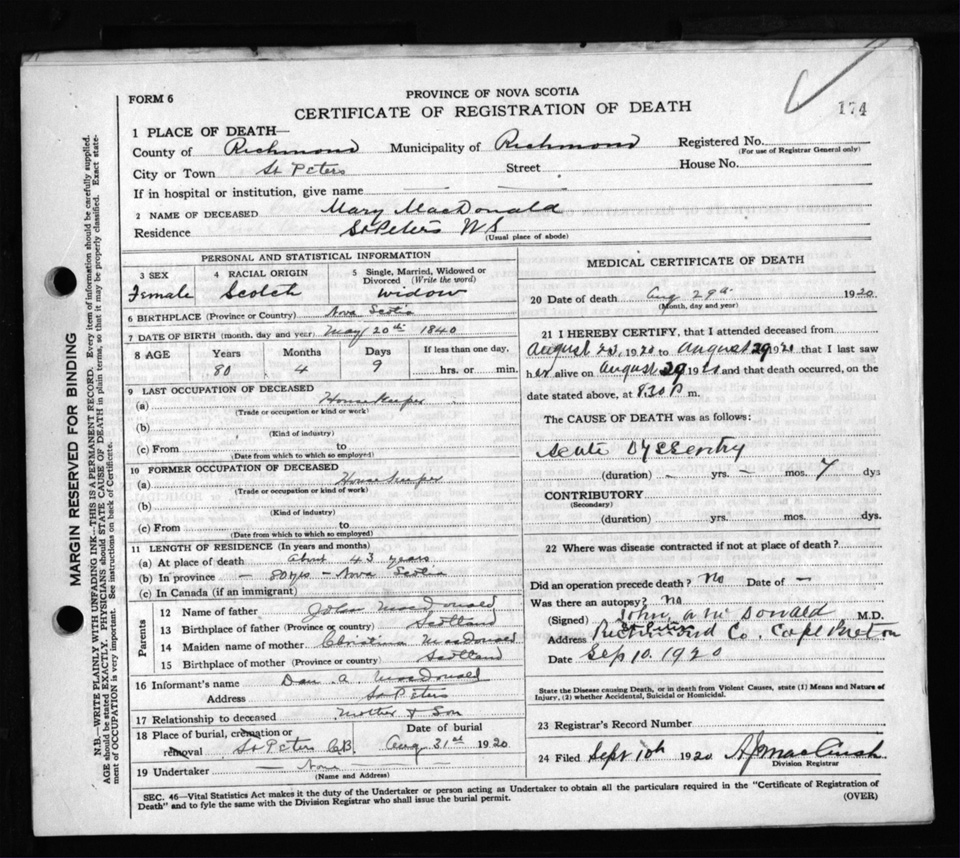 PROVINCE OF NOVA SCOTIA
FORM 6
CERTIFICATE OF REGISTRATION OF DEATH
174
1 PLACE OF DEATH—
County of Richmond Municipality of Richmond Registered No.
(For use of Registrar General only)
City or Town St Peters Street House No.
If in hospital or institution, give name
2 NAME OF DECEASED Mary MacDonald
Residence St Peters N S
(Usual place of abode)
PERSONAL AND STATISTICAL INFORMATION
3 SEX 4 RACIAL ORIGIN 5 Single, Married, Widowed or Divorced (Write the word)
Female Scotch widow
6 BIRTHPLACE (Province or Country) Nova Scotia
7 DATE OF BIRTH (month, day and year) May 20th 1840
8 AGE Years Months Days If less than one day,
80 4 9 hrs. or min.
9 LAST OCCUPATION OF DECEASED
(a) House Keeper
(Trade or occupation or kind or work)
(b)
(Kind of industry)
(c) From to
(Date from which to which so employed)
10 FORMER OCCUPATION OF DECEASED
(a) House Keeper
(Trade or occupation or kind or work)
(b)
(Kind of industry)
(c) From to
(Date from which to which so employed)
11 LENGTH OF RESIDENCE (In years and months)
(a) At place of death about 43 years
(b) In province — 80 yrs — Nova Scotia
(c) In Canada (if an immigrant)
Parents
12 Name of father John MacDonald
13 Birthplace of father (Province or country) Scotland
14 Maiden name of mother Christina MacDonald
15 Birthplace of mother (Province or country) Scotland
16 Informant's name Dan A. MacDonald
Address St Peters
17 Relationship to deceased Mother & Son
18 Place of burial, cremation or removal St Peters C.B. Date of burial Aug 31st 1920
19 Undertaker — None —
(Name and Address)
MEDICAL CERTIFICATE OF DEATH
20 Date of death Aug 29th 1920
(Month, day and year)
21 I HEREBY CERTIFY, that I attended deceased from
August 23, 1920 to August 29 1920 that I last saw
her alive on August 29 1920 and that death occurred, on the
date stated above, at 8.30 P m.
The CAUSE OF DEATH was as follows:
Acute Dysentry
(duration) – yrs. – mos. 7 dys
CONTRIBUTORY
(Secondary)
(duration) yrs. mos. dys.
22 Where was disease contracted if not at place of death?
Did an operation precede death? No Date of —
Was there an autopsy? No
(Signed) John A McDonald M.D.
Address St Peters Richmond Co. Cape Breton
Date Sep 10. 1920
State the Disease causing Death, or in death from Violent Causes, state (1) Means and Nature of
Injury, (2) whether Accidental, Suicidal or Homicidal.
23 Registrar's Record Number
24 Filed Sept 10th 1920
Division Registrar
SEC. 46—Vital Statistics Act makes it the duty of the Undertaker or person acting as Undertaker to obtain all the particulars required in the "Certificate of Registration of
Death" and to fyle the same with the Division Registrar who shall issue the burial permit.
(OVER)
MARGIN RESERVED FOR BINDING
N.B.—WRITE PLAINLY WITH UNFADING INK—THIS IS A PERMANENT RECORD. Every item of information should be carefully supplied.
AGE should be stated EXACTLY. PHYSICIANS should STATE CAUSE OF DEATH in plain terms, so that it may be properly classified. Exact state-
ment of OCCUPATION is very important. See instructions on back of Certificate.